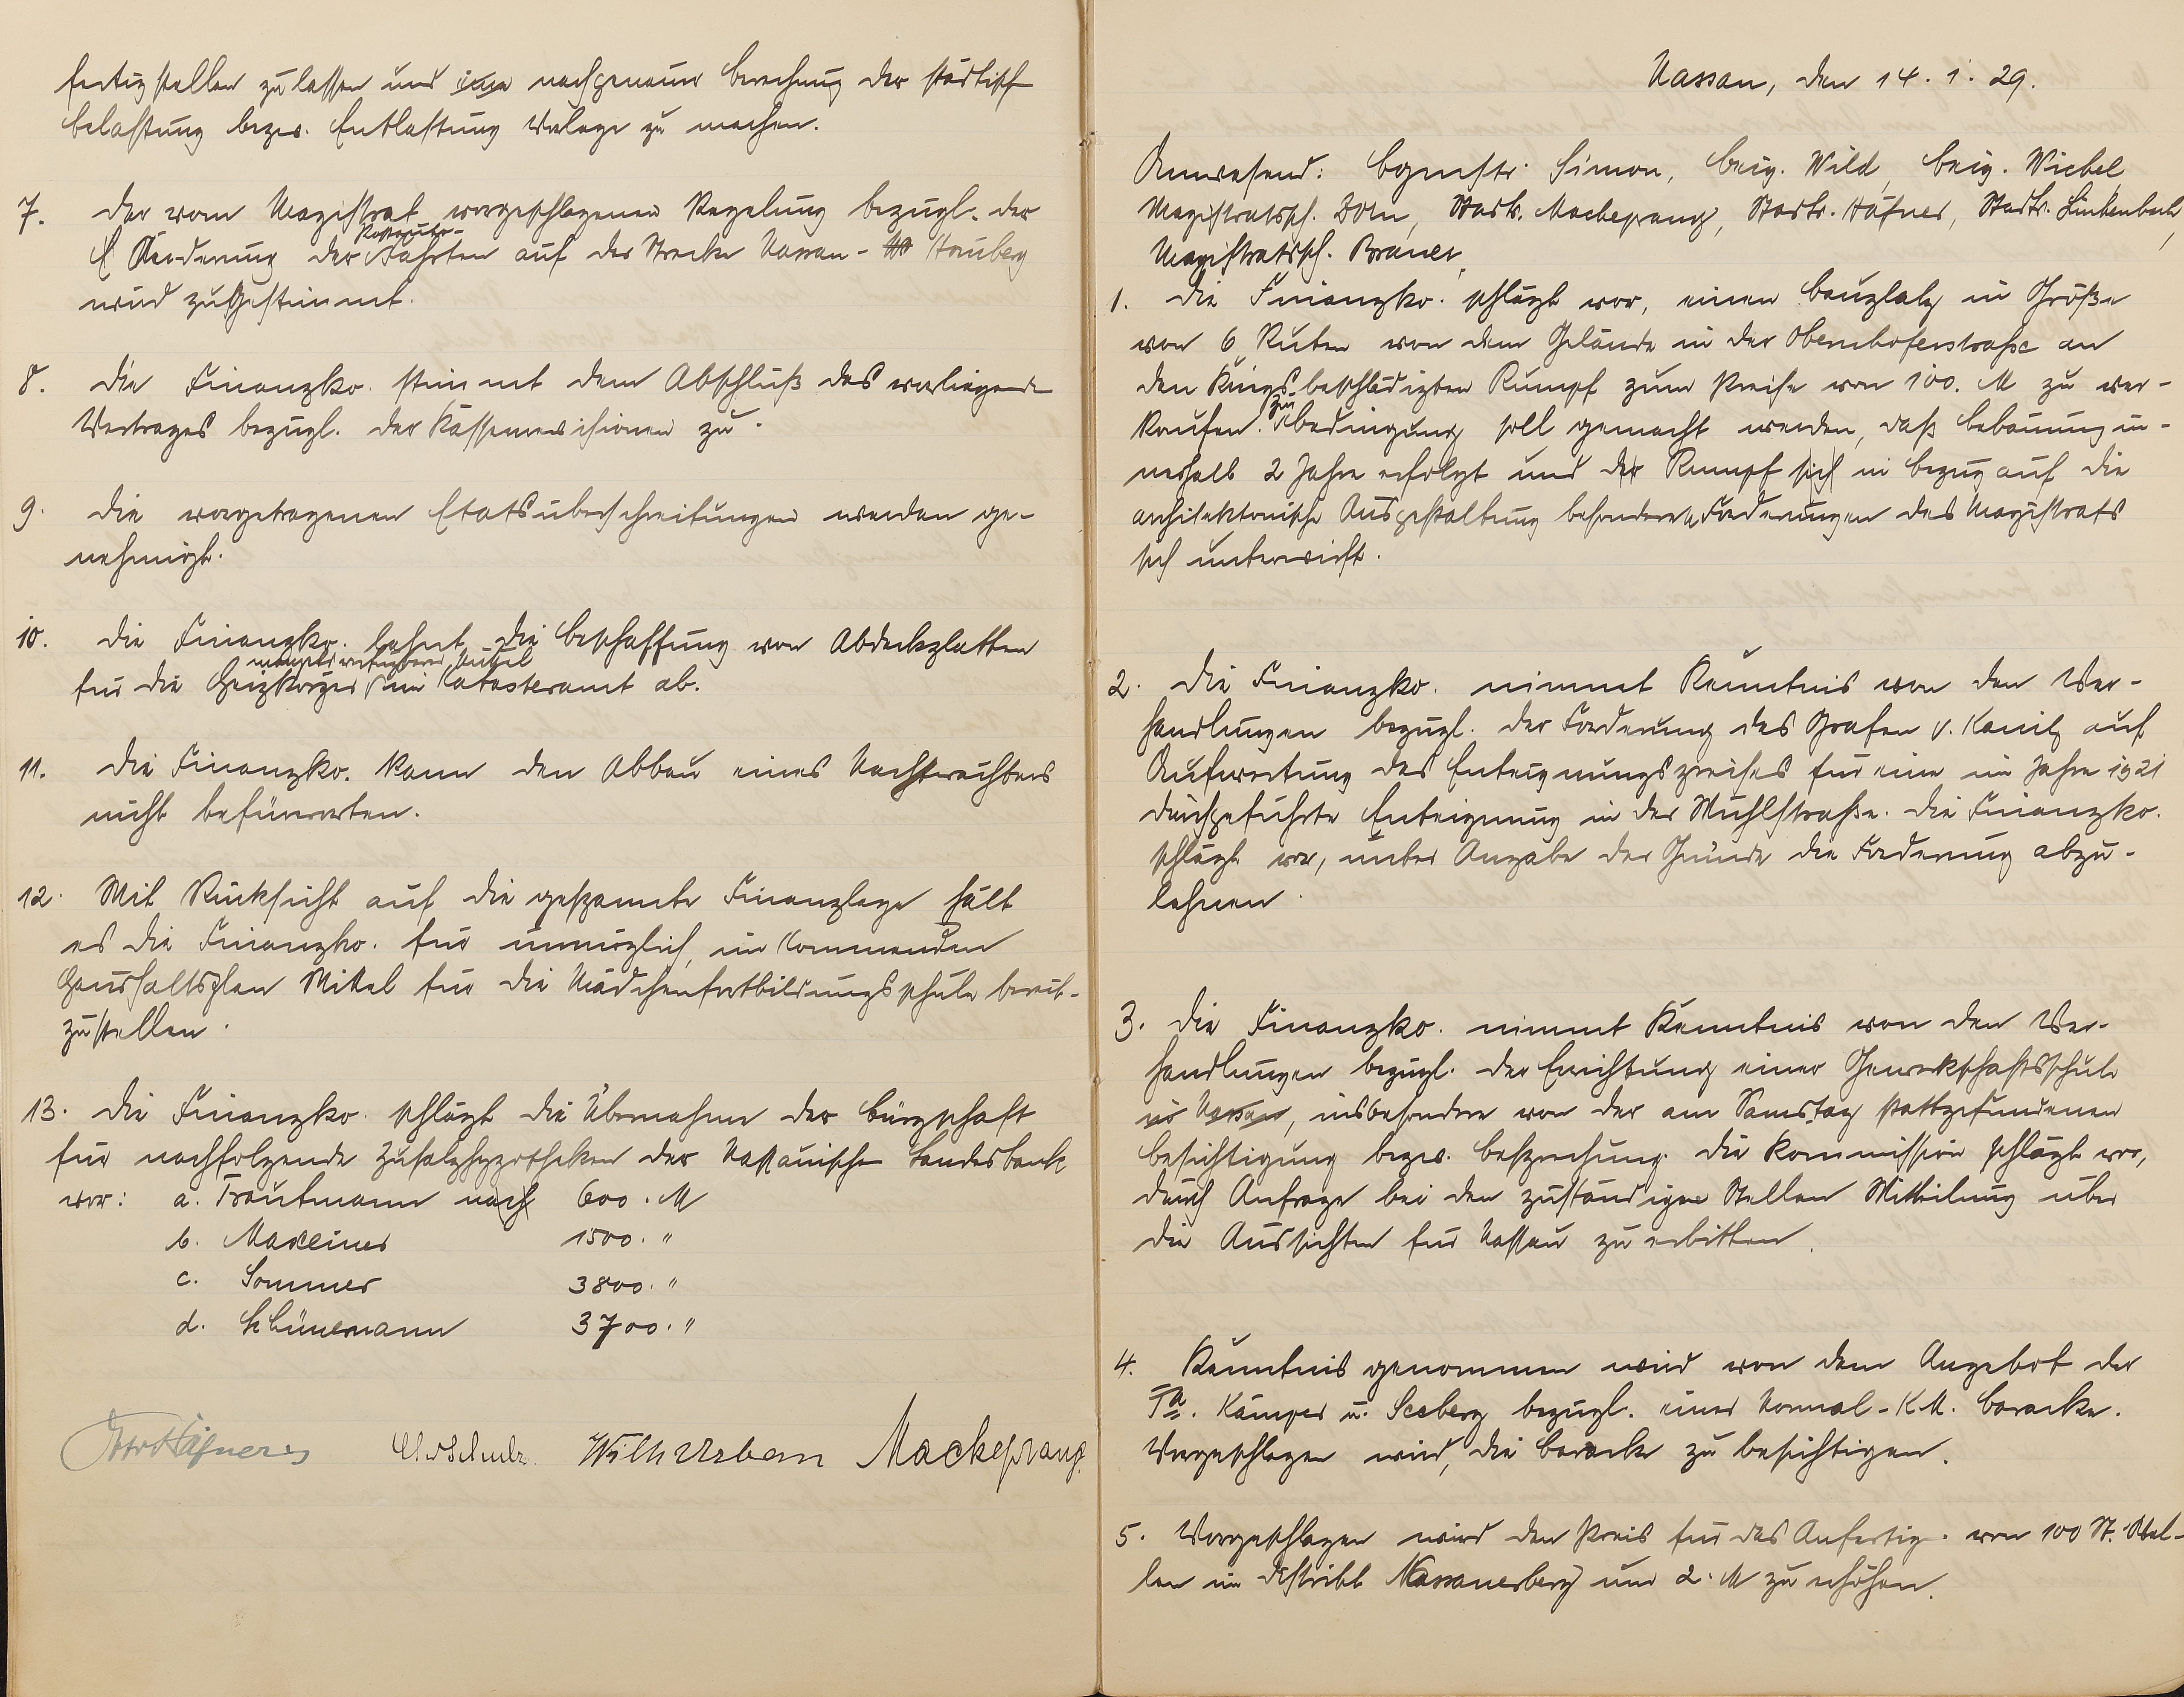 fertigstellen zu lassen und nach genauer Berechnung der städtisch
Belastung bezw. Entlastung Vorlage zu machen.
7. Der vom Magistrat vorgeschlagenen Regelung bezügl. der
Änderung der Postauto-Fahrten auf der Strecke Nassau - Hömberg
wird zugestimmt.
8. Die Finanzko. stimmt dem Abschluß des vorliegenden
Vertrages bezügl. der Kassenrevisionen zu.
9. Die vorgetragenen Etatsüberschreitungen werden ge-
nehmigt.
10. Die Finanzko. lehnt die Beschaffung von Abdeckplatten
mangels verfügbarer Mittel
für die Heizkörper im Katasteramt ab.
11. Die Finanzko. kann den Abbau eines Nachtwächters
nicht befürworten.
12. Mit Rücksicht auf die gespannte Finanzlage hält
es die Finanzko. für unmöglich, im kommenden
Haushaltsplan Mittel für die Mädchenfortbildungsschule bereit-
zustellen.
13. Die Finanzko. schlägt die Übernahme der Bürgschaft
für nachfolgende Zusatzhypotheken der Nassauischen Landesbank
vor: a. Trautmann noch 600. M
b. Maxeiner 1500. "
c. Sommer 3800. "
d. Schünemann 3700. "
Otto Häfner Wilh Urban Mackeprang
Nassau, den 14. 1. 29.
Anwesend: Bgmstr. Simon, Beig. Wild, Beig. Wiebel
Magistratssch. Born, Stadtr. Mackeprang, Stadtr. Häfner, Stadtr. Linkenbach,
Magistratssch. Brauer,
1. Die Finanzko. schlägt vor, einen Bauplatz in Größe
von 6 Ruten von dem Gelände in der Obernhoferstraße an
den Kriegsbeschädigten Rumpf zum Preise von 100. M zu ver-
kaufen. Zur Bedingung soll gemacht werden, daß Bebauung in-
nerhalb 2 Jahre erfolgt und der Rumpf sich in bezug auf die
architektonische Ausgestaltung besonderen Forderungen des Magistrats
sich unterwirft.
2. Die Finanzko. nimmt Kenntnis von den Ver-
handlungen bezügl. der Forderung des Grafen v. Kanitz auf
Aufwertung des Enteignungspreises für eine im Jahre 1921
durchgeführte Enteignung in der Mühlstraße. Die Finanzko.
schlägt vor, unter Angabe der Gründe die Forderung abzu-
lehnen.
3. Die Finanzko. nimmt Kenntnis von den Ver-
handlungen bezügl. der Errichtung einer Gewerkschaftsschule
in Nassau, insbesondere von der am Samstag stattgefundenen
Besichtigung bezw. Besprechung. Die Kommission schlägt vor,
durch Anfrage bei den zuständigen Stellen Mitteilung über
die Aussichten für Nassau zu erbitten.
4. Kenntnis genommen wird von dem Angebot der
Fa. Kämper u. Seeberg bezügl. einer Normal-K.M. Baracke.
Vorgeschlagen wird, die Baracke zu besichtigen.
5. Vorgeschlagen wird den Preis für das Anfertig. von 100 St. Wel-
len im Distrikt Nassauerberg um 2. M zu erhöhen.